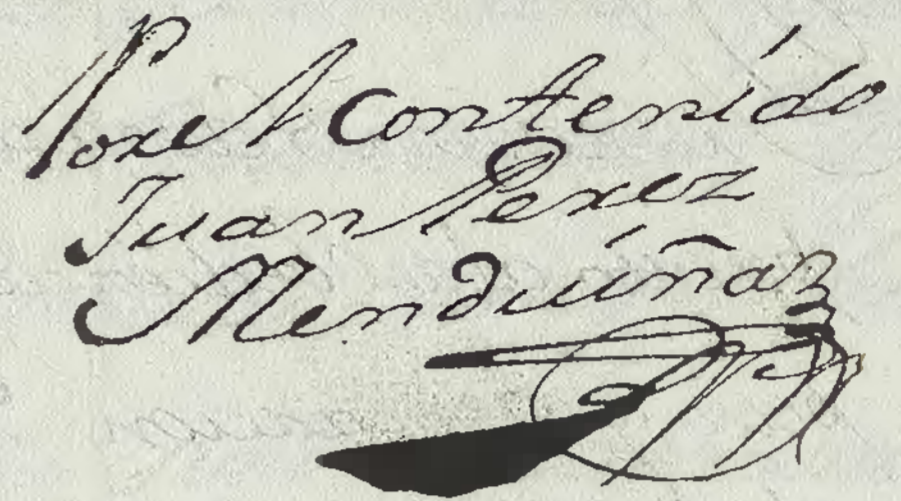 Por el Contenido
Juan Perez
Menduíña